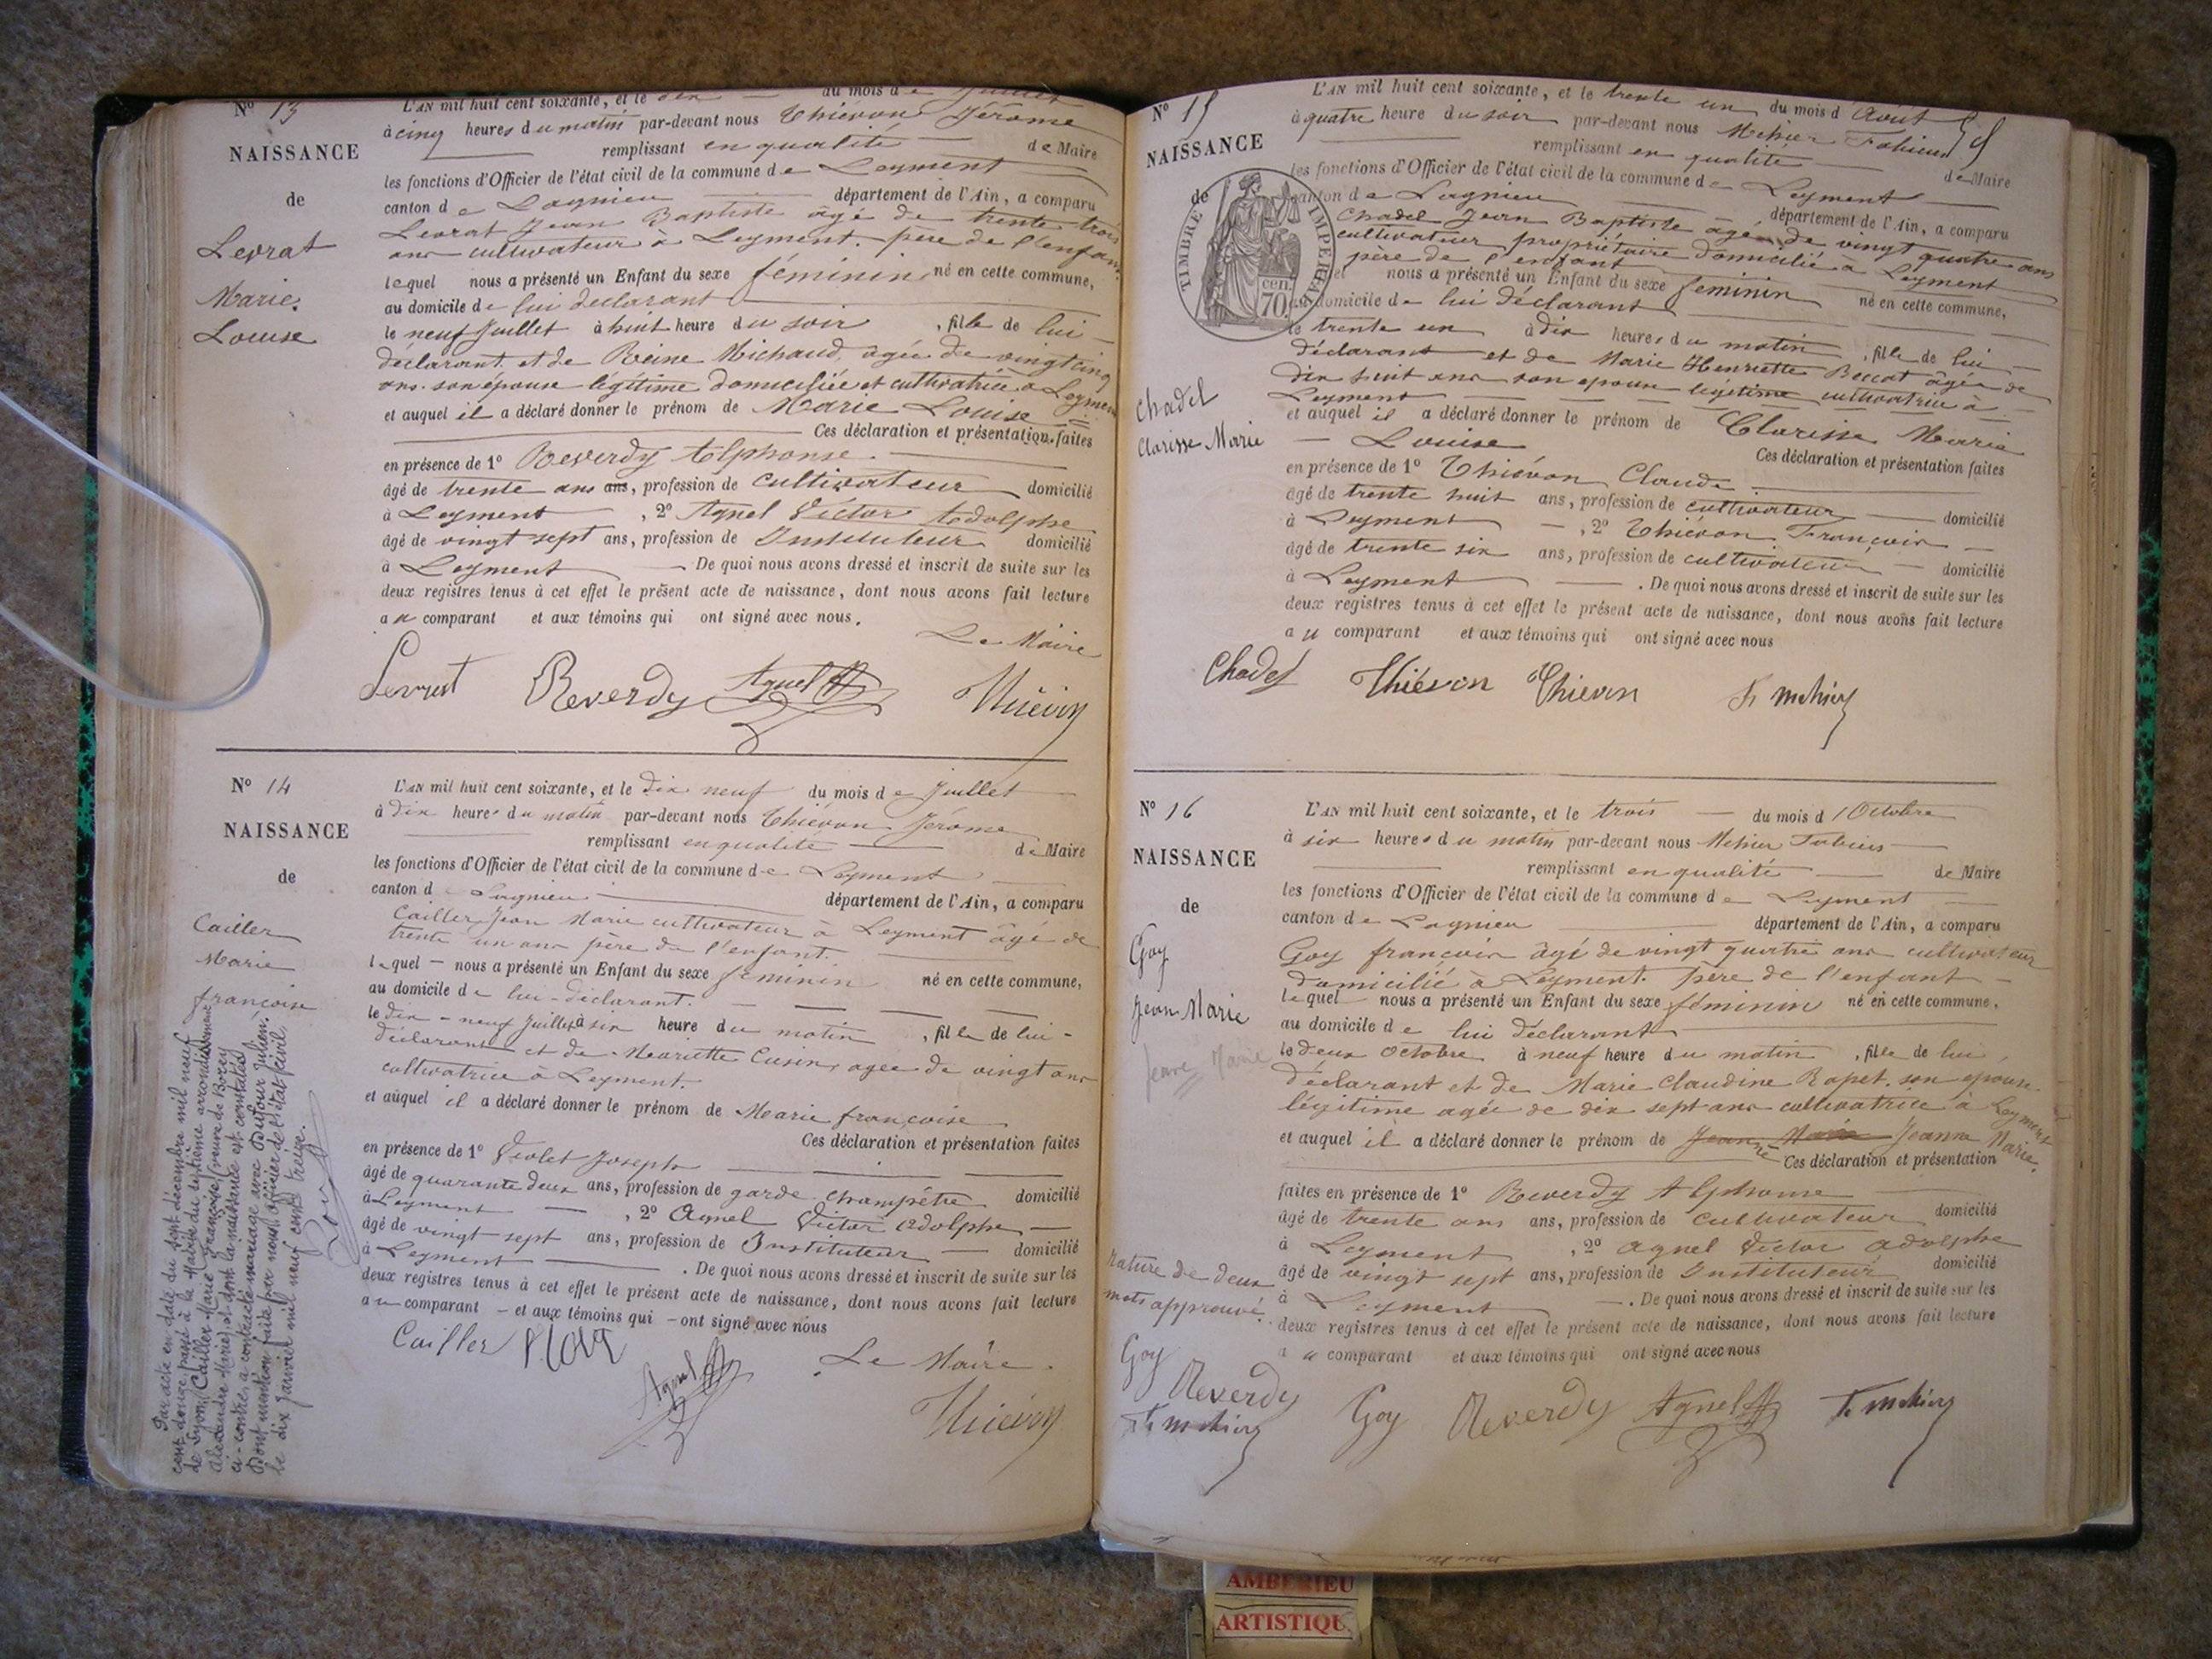 N° 13
NAISSANCE
de
Levrat
Marie
Louise
L'AN mil huit cent soixante, et le dix du mois de Juillet
à cinq heures du matin par-devant nous Thiévon Jérôme
remplissant en qualité de Maire
les fonctions d'Officier de l'état civil de la commune de Leyment
canton de Lagnieu département de l'Ain, a comparu
Levrat Jean Baptiste âgé de trente trois
ans cultivateur à Leyment. père de l'enfant
lequel nous a présenté un Enfant du sexe féminin né en cette commune,
au domicile de lui déclarant
le neuf Juillet à huit heure du soir, fille de lui
déclarant et de Reine Michaud, âgée de vingt cinq
ans. son épouse légitime domiciliée et cultivatrice à Leyment
et auquel il a déclaré donner le prénom de Marie Louise
Ces déclaration et présentation faites
en présence de 1° Reverdy Alphonse
âgé de trente ans ans, profession de cultivateur domicilié
à Leyment, 2° Agnel Victor Adolphe
âgé de vingt sept ans, profession de Instituteur domicilié
à Leyment De quoi nous avons dressé et inscrit de suite sur les
deux registres tenus à cet effet le présent acte de naissance, dont nous avons fait lecture
au comparant et aux témoins qui ont signé avec nous.
Le Maire
Levrat Reverdy Agnel Thiévon
N° 14
NAISSANCE
de
Cailler
Marie
françoise
L'AN mil huit cent soixante, et le dix neuf du mois de Juillet
à dix heures du matin par-devant nous Thiévon Jérôme
remplissant en qualité de Maire
les fonctions d'Officier de l'état civil de la commune de Leyment
canton d Lagnieu département de l'Ain, a comparu
Cailler Jean Marie cultivateur à Leyment âgé de
trente un ans père de l'enfant.
lequel nous a présenté un Enfant du sexe féminin né en cette commune,
au domicile de lui-déclarant.
le dix-neuf Juillet à six heure du matin, fille de lui-
déclarant et de Mariette Cusin, agée de vingt ans
cultivatrice à Leyment.
et auquel il a déclaré donner le prénom de Marie françoise
Ces déclaration et présentation faites
en présence de 1° Violet Joseph
âgé de quarante deux ans, profession de garde champêtre domicilié
à Leyment, 2° Agnel Victor Adolphe
âgé de vingt sept ans, profession de Instituteur domicilié
à Leyment. De quoi nous avons dressé et inscrit de suite sur les
deux registres tenus à cet effet le présent acte de naissance, dont nous avons fait lecture
au comparant - et aux témoins qui - ont signé avec nous
Cailler Agnel Le Maire
Thiévon
Par acte en date du sept décembre mil neuf
cent douze, passé à la Mairie du septième arrondissement
de Lyon, Cailler Marie Françoise, (veuve de Borey
Alexandre Marie), et dont la naissance est constatée
ci-contre, a contracté mariage avec Dufour Julien.
Dont mention faite par nous, officier de l'état civil,
le dix Janvier mil neuf cent treize.
N° 15
NAISSANCE
de
TIMBRE IMPERIAL
70 cen.
Chadel
Clarisse Marie
L'AN mil huit cent soixante, et le trente un du mois d Août
à quatre heure du soir par-devant nous Mehier Fabien
remplissant en qualité de Maire
les fonctions d'Officier de l'état civil de la commune de Leyment
canton de Lagnieu département de l'Ain, a comparu
Chadel Jean Baptiste âgé de vingt quatre ans
cultivateur propriétaire domicilié à Leyment
père de l'enfant
lequel nous a présenté un Enfant du sexe féminin né en cette commune,
au domicile de lui déclarant
le trente un à dix heures du matin, fille de lui
déclarant et de Marie Henriette Beccat âgée de
dix huit ans son épouse légitime cultivatrice à
Leyment
et auquel il a déclaré donner le prénom de Clarisse Marie
Louise
Ces déclaration et présentation faites
en présence de 1° Thiévon Claude
âgé de trente huit ans, profession de cultivateur domicilié
à Leyment, 2° Thiévon François
âgé de trente six ans, profession de cultivateur domicilié
à Leyment. De quoi nous avons dressé et inscrit de suite sur les
deux registres tenus à cet effet le présent acte de naissance, dont nous avons fait lecture
au comparant et aux témoins qui ont signé avec nous
Chadel Thiévon Thievon F. Mehier
N° 16
NAISSANCE
de
Goy
Jean Marie
Jeanne Marie
L'AN mil huit cent soixante, et le trois du mois d'Octobre
à six heures du matin par-devant nous Mehier Fabien
remplissant en qualité de Maire
les fonctions d'Officier de l'état civil de la commune de Leyment
canton de Lagnieu département de l'Ain, a comparu
Goy françois âgé de vingt quatre ans cultivateur
domicilié à Leyment. père de l'enfant
lequel nous a présenté un Enfant du sexe féminin né en cette commune,
au domicile de lui déclarant
le deux Octobre à neuf heure du matin, fille de lui
déclarant et de Marie Claudine Rapet. son épouse
légitime agée de dix sept ans cultivatrice à Leyment
et auquel il a déclaré donner le prénom de Jean Marie Jeanne Marie.
Ces déclaration et présentation
faites en présence de 1° Reverdy Alphonse
âgé de trente ans ans, profession de cultivateur domicilié
à Leyment, 2° Agnel Victor Adolphe
âgé de vingt sept ans, profession de Instituteur domicilié
à Leyment. De quoi nous avons dressé et inscrit de suite sur les
deux registres tenus à cet effet le présent acte de naissance, dont nous avons fait lecture
au comparant et aux témoins qui ont signé avec nous
Rature de deux
mots approuvé.
Goy
Reverdy
F. Mehier
Goy Reverdy Agnel F. Mehier
AMBERIEU
ARTISTIQU